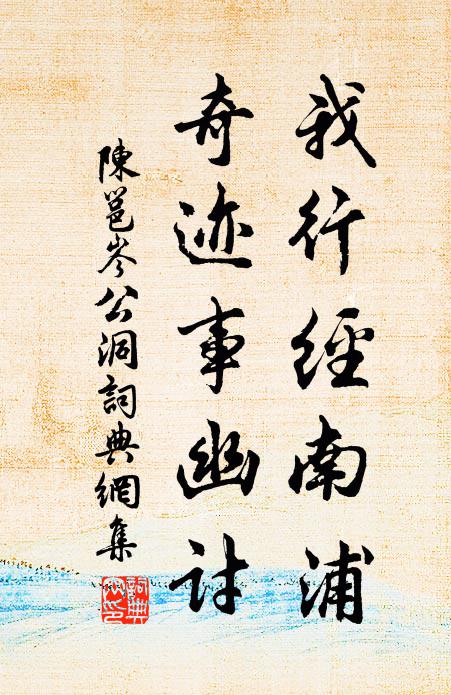 我行經南浦
奇迹事幽討
陳邕岑公洞詞典網集